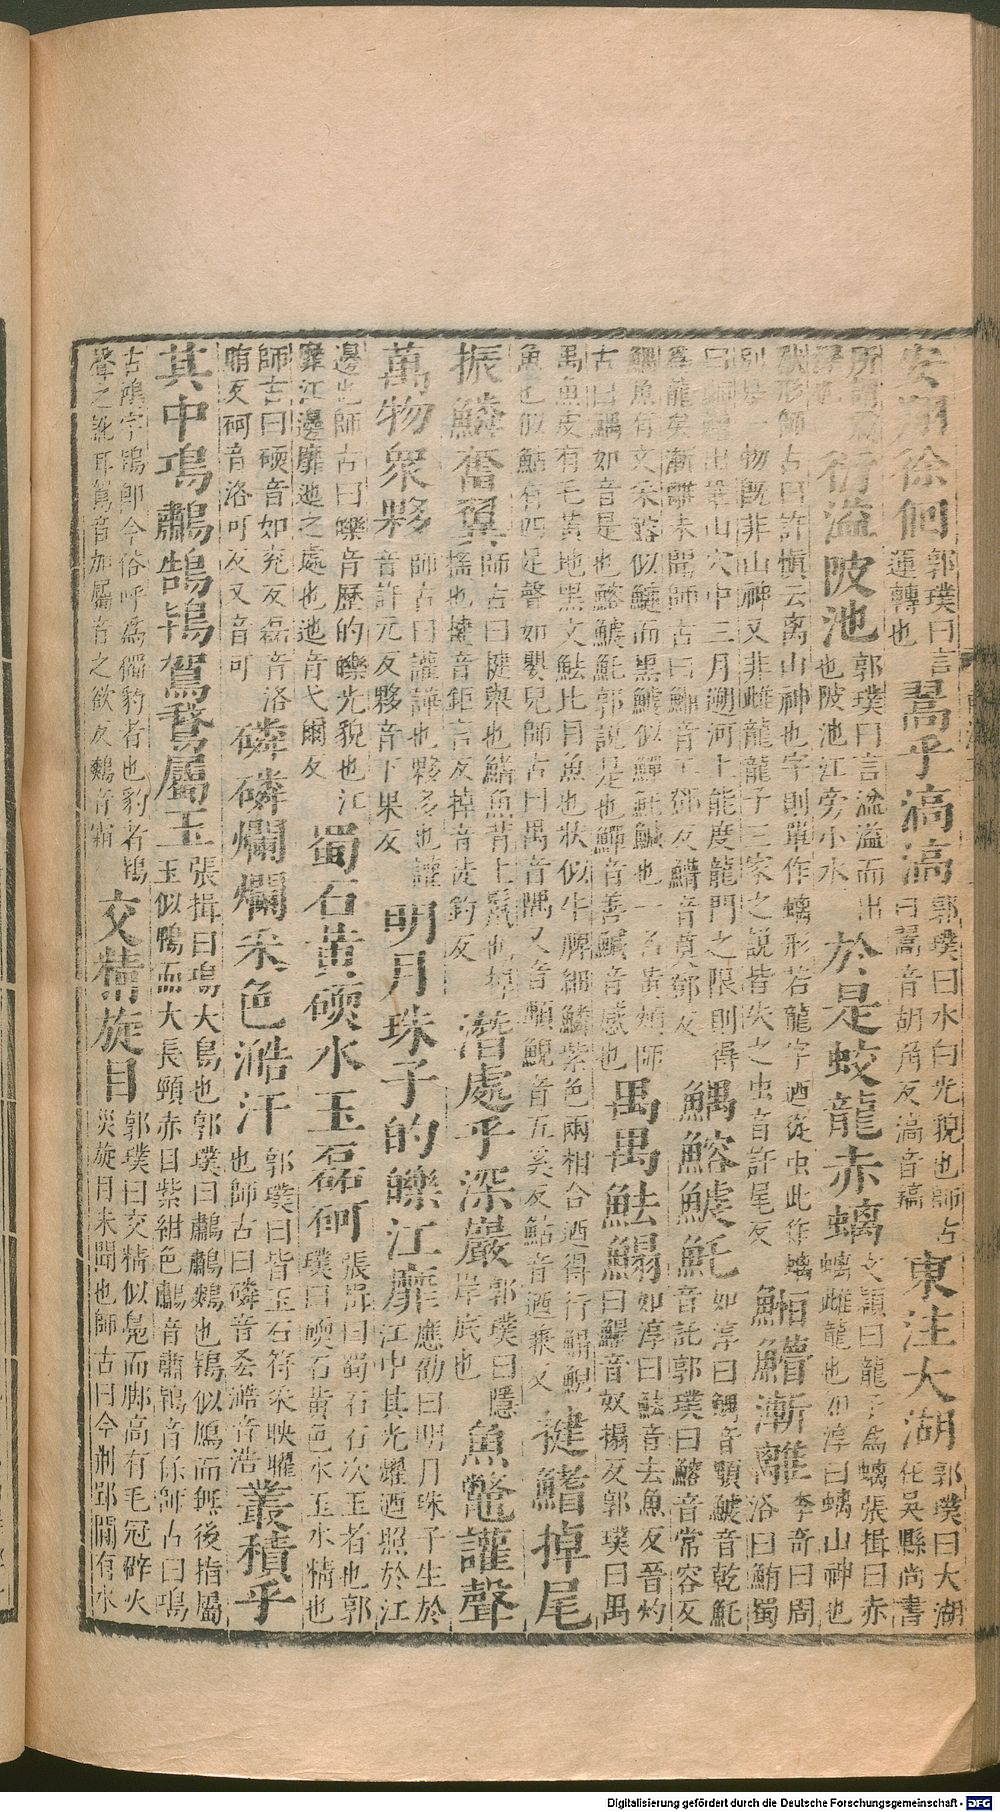 安翔徐侗郭璞曰言運轉也翯乎滈滈郭璞曰水白光貌也師古曰翯音胡角反滈音稿東注大湖郭璞曰大湖在吳縣尚書
所謂震澤也衍溢陂池郭璞曰言溢溢而出也陂池江旁小水於是蛟龍赤螭文穎曰龍子為螭張揖曰赤螭雌龍也如淳曰螭山神也
獸形師古曰許慎云离山神也字則單作螭形若龍字迺從虫此作螭別是一物既非山神又非雌龍龍子三家之說皆失之虫音許尾反䱭䲛漸離李奇曰周洛曰鮪蜀
曰䱭䲛出鞏山穴中三月遡河上能度龍門之限則得為龍矣漸離未聞師古曰䱭音工鄧反䲛音莫鄧反鰅鰫鰬魠如淳曰鰅音顒鰬音乾魠音託郭璞曰鰫音常容反
鰅魚有文采鰫似鰱而黑鰬似鱓魠鱤也一名黃頰師古曰鰅如音是也鰫鰬魠郭說是也鱓音善鱤音感也禺禺魼鰨如淳曰魼音去魚反晉灼曰鰨音奴搨反郭璞曰禺
禺魚皮有毛黃地黑文魼比目魚也狀似牛脾細鱗紫色兩相合迺得行鰨鯢魚也似鮎有四足聲如嬰兒師古曰禺音隅又音顒鯢音五奚反鮎音迺兼反揵鰭掉尾
振鱗奮翼師古曰揵舉也鰭魚背上鬣也掉搖也揵音鉅言反掉音徒釣反潛處乎深巖郭璞曰隱岸底也魚鼈讙聲
萬物衆夥師古曰讙譁也夥多也讙音許元反夥音下果反明月珠子的皪江靡應劭曰明月珠子生於江中其光耀迺照於江
邊也師古曰皪音歷的皪光貌也江靡江邊靡迆之處也迆音弋爾反蜀石黃碝水玉磊砢張揖曰蜀石石次玉者也郭璞曰碝石黃色水玉水精也
師古曰碝音如兗反磊音洛賄反砢音洛可反又音可磷磷爛爛采色澔汗郭璞曰皆玉石符采映曜也師古曰磷音粦澔音浩叢積乎
其中鳿鷫鵠鴇鴐鵞屬玉張揖曰鳿大鳥也郭璞曰鷫鷫鷞也鴇似鴈而無後指屬玉似鴨而大長頸赤目紫紺色鷫音肅鴇音保師古曰鳿
古鴻字鵠即今俗呼為獨豹者也豹者鴇聲之訛耳鴐音加屬音之欲反鷞音霜交精旋目郭璞曰交精似鳧而脚高有毛冠辟火災旋目未聞也師古曰今荊郢間有水
Digitalisierung gefördert durch die Deutsche Forschungsgemeinschaft - DFG